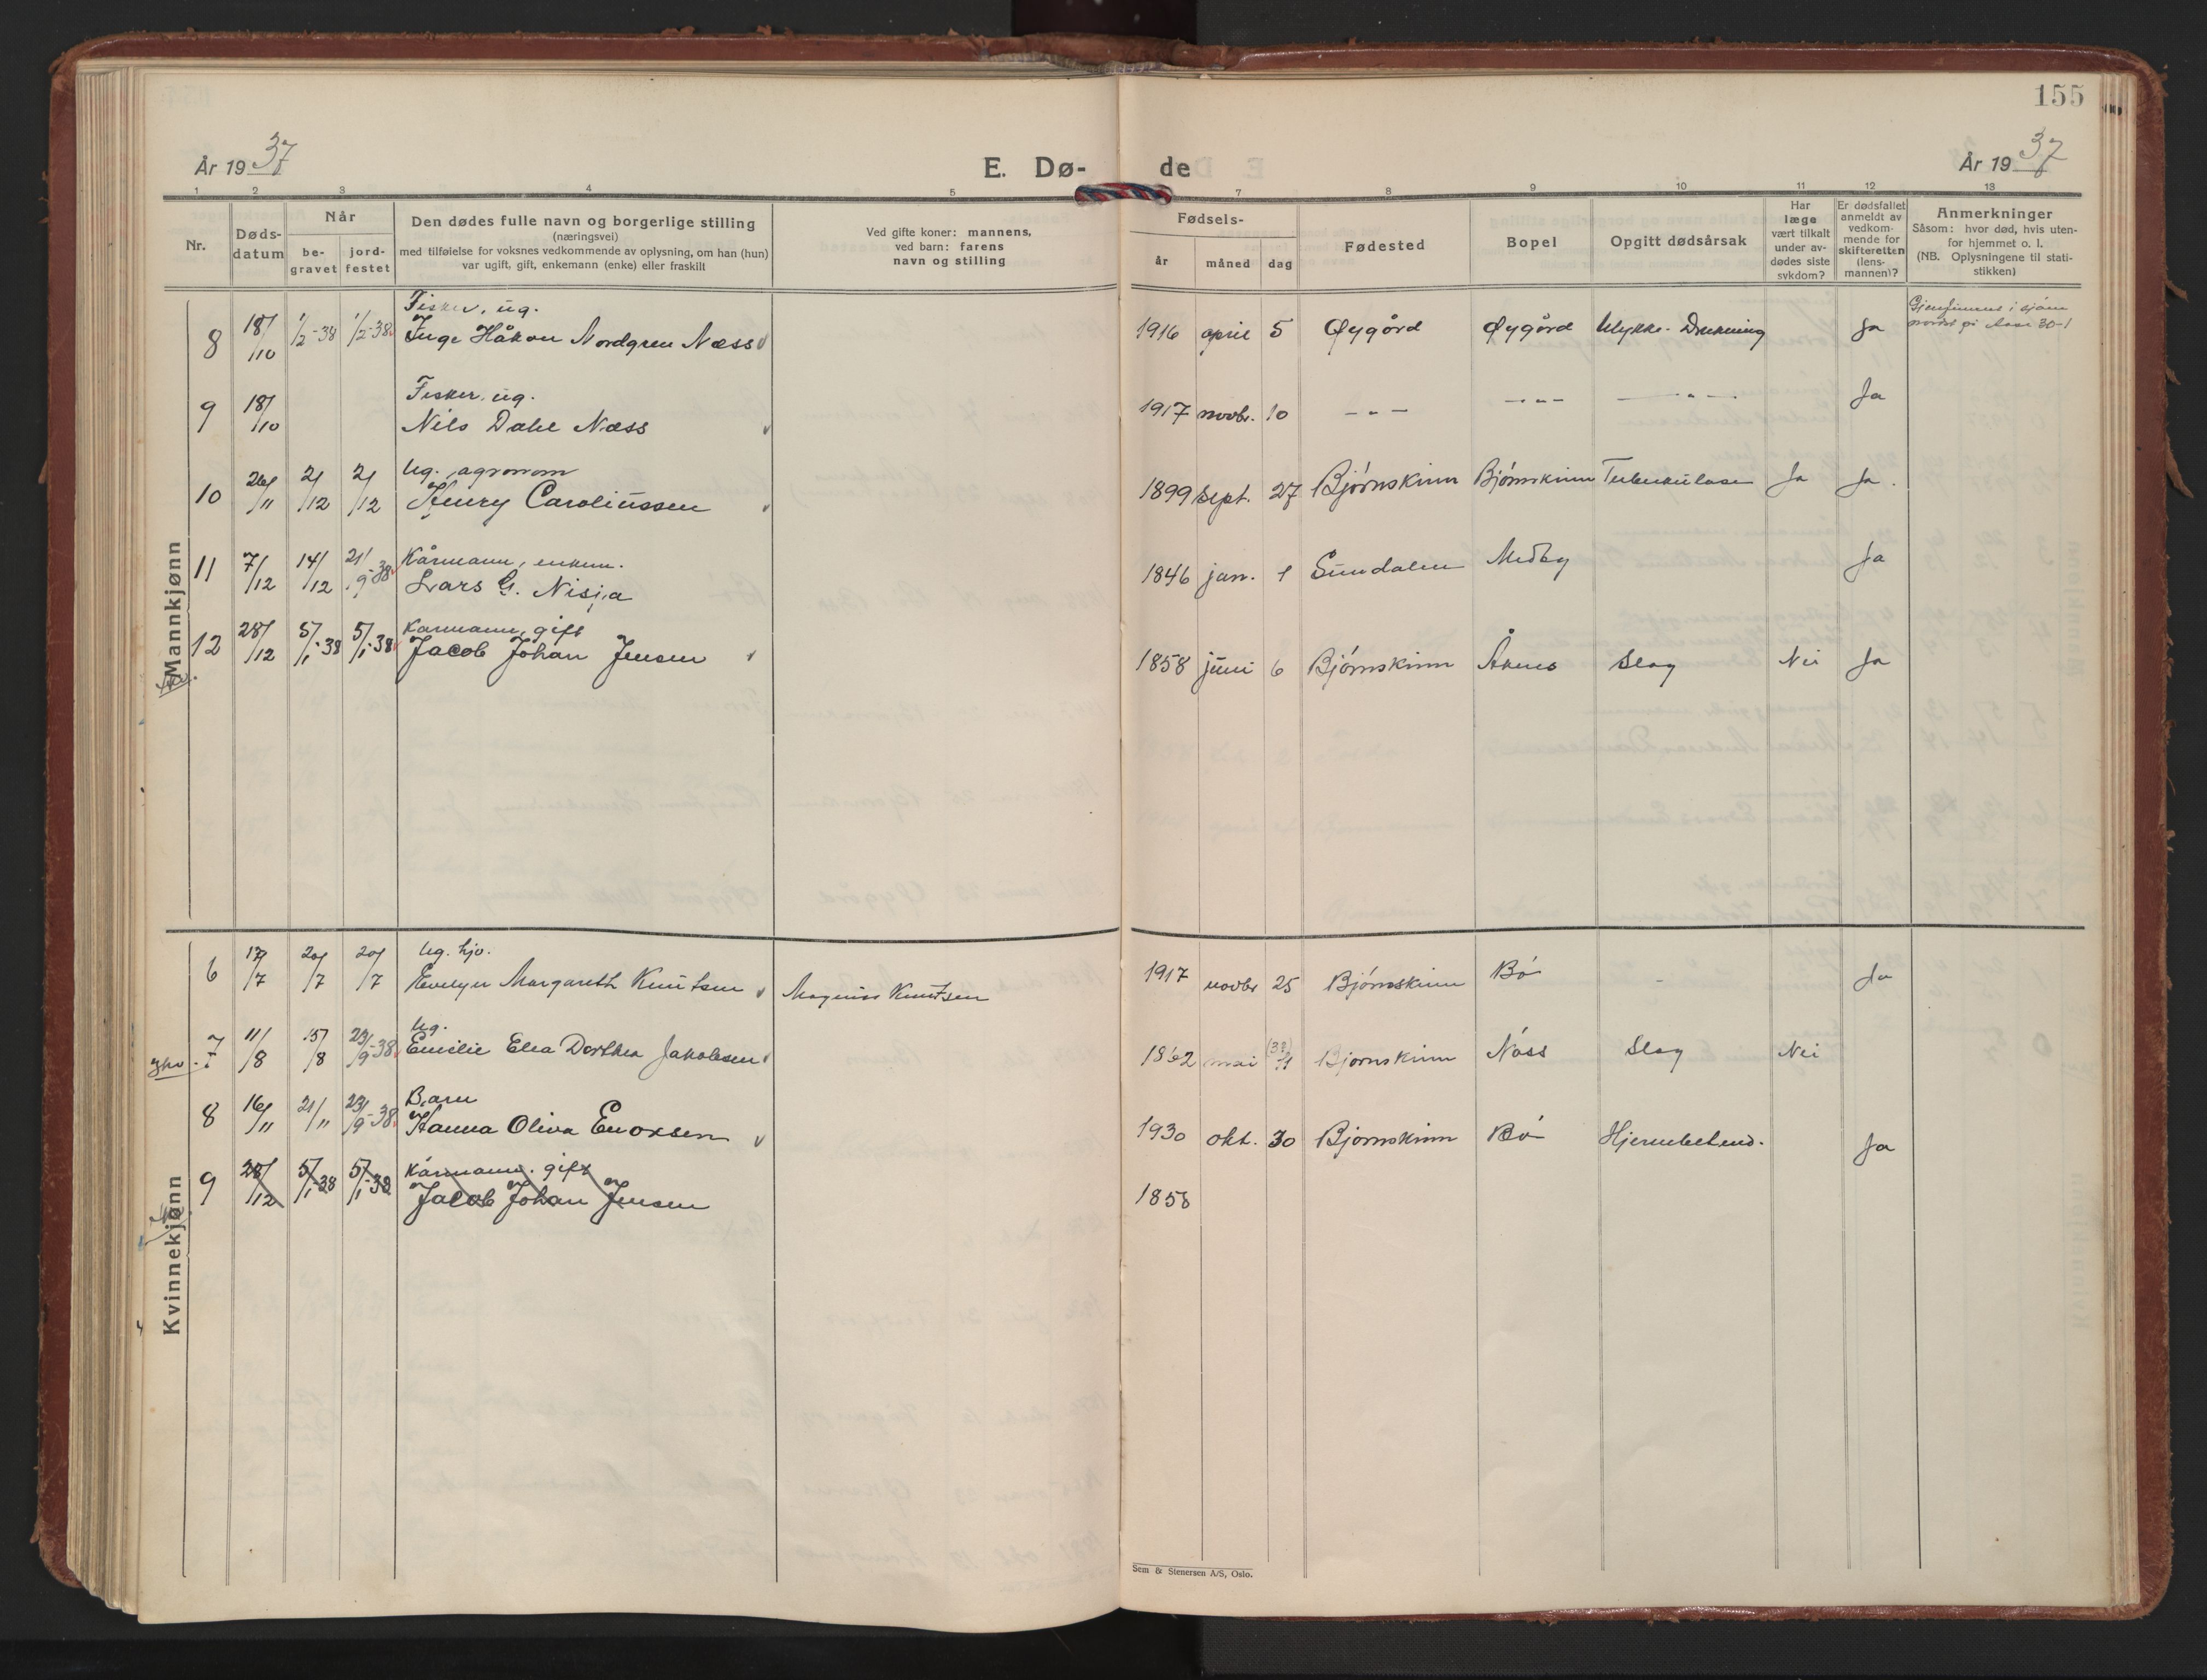 155
År 1937
E. Dø-
de
År 1937
1 2 3 4 5 7 8 9 10 11 12 13
Nr.
Døds-
datum
Når
be-
gravet
jord-
festet
Den dødes fulle navn og borgerlige stilling
(næringsvei)
med tilføielse for voksnes vedkommende av oplysning, om han (hun)
var ugift, gift, enkemann (enke) eller fraskilt
Ved gifte koner: mannens,
ved barn: farens
navn og stilling
Fødsels-
år måned dag
Fødested
Bopel
Opgitt dødsårsak
Har
læge
vært tilkalt
under av-
dødes siste
sykdom?
Er dødsfallet
anmeldt av
vedkom-
mende for
skifteretten
(lens-
mannen)?
Anmerkninger
Såsom: hvor død, hvis uten-
for hjemmet o. l.
(NB. Oplysningene til stati-
stikken)
Mannkjønn
Fisker, ug.
8 18/10 1/2-38 1/2-38 Inge Håkon Nordgren Næss 1916 april 5 Øygård Øygård Ulykke. Drukning Ja
Gjenfunnet i sjøen
30-1
Fisker, ug.
9 18/10 Nils Dahl Næss 1917 novbr. 10 -"- -"- -"- Ja
Ug. agronom
10 26/11 2/12 2/12 Henry Caroliussen 1899 sept. 27 Bjørnskinn Bjørnskinn Tuberkulose Ja Ja.
Kårmann, enkem.
11 7/12 14/12 21/9-38 Lars G. Nisja 1846 jan. 1 Sundalen Medby Ja
Kårmann, gift
12 28/12 5/1-38 5/1-38 Jacob Johan Jensen 1858 juni 6 Bjørnskinn Åknes Slag Nei Ja
Kvinnekjønn
Ug. hjv.
6 17/7 20/7 20/7 Evelyn Margareth Knutsen Magnus Knutsen 1917 novbr 25 Bjørnskinn Bø - Ja
Ug.
7 11/8 15/8 23/9-38 Emilie Elea Dorthea Jakobsen 1862 mai (31) 11 Bjørnskinn Nøss Slag Nei
Barn
8 16/11 21/11 23/9-38 Hanna Oliva Enoxsen 1930 okt. 30 Bjørnskinn Bø Hjernebetend. Ja
Kårmann. gift
9 28/12 5/1-38 5/1-38 Jacob Johan Jensen 1858
Sem & Stenersen A/S, Oslo.